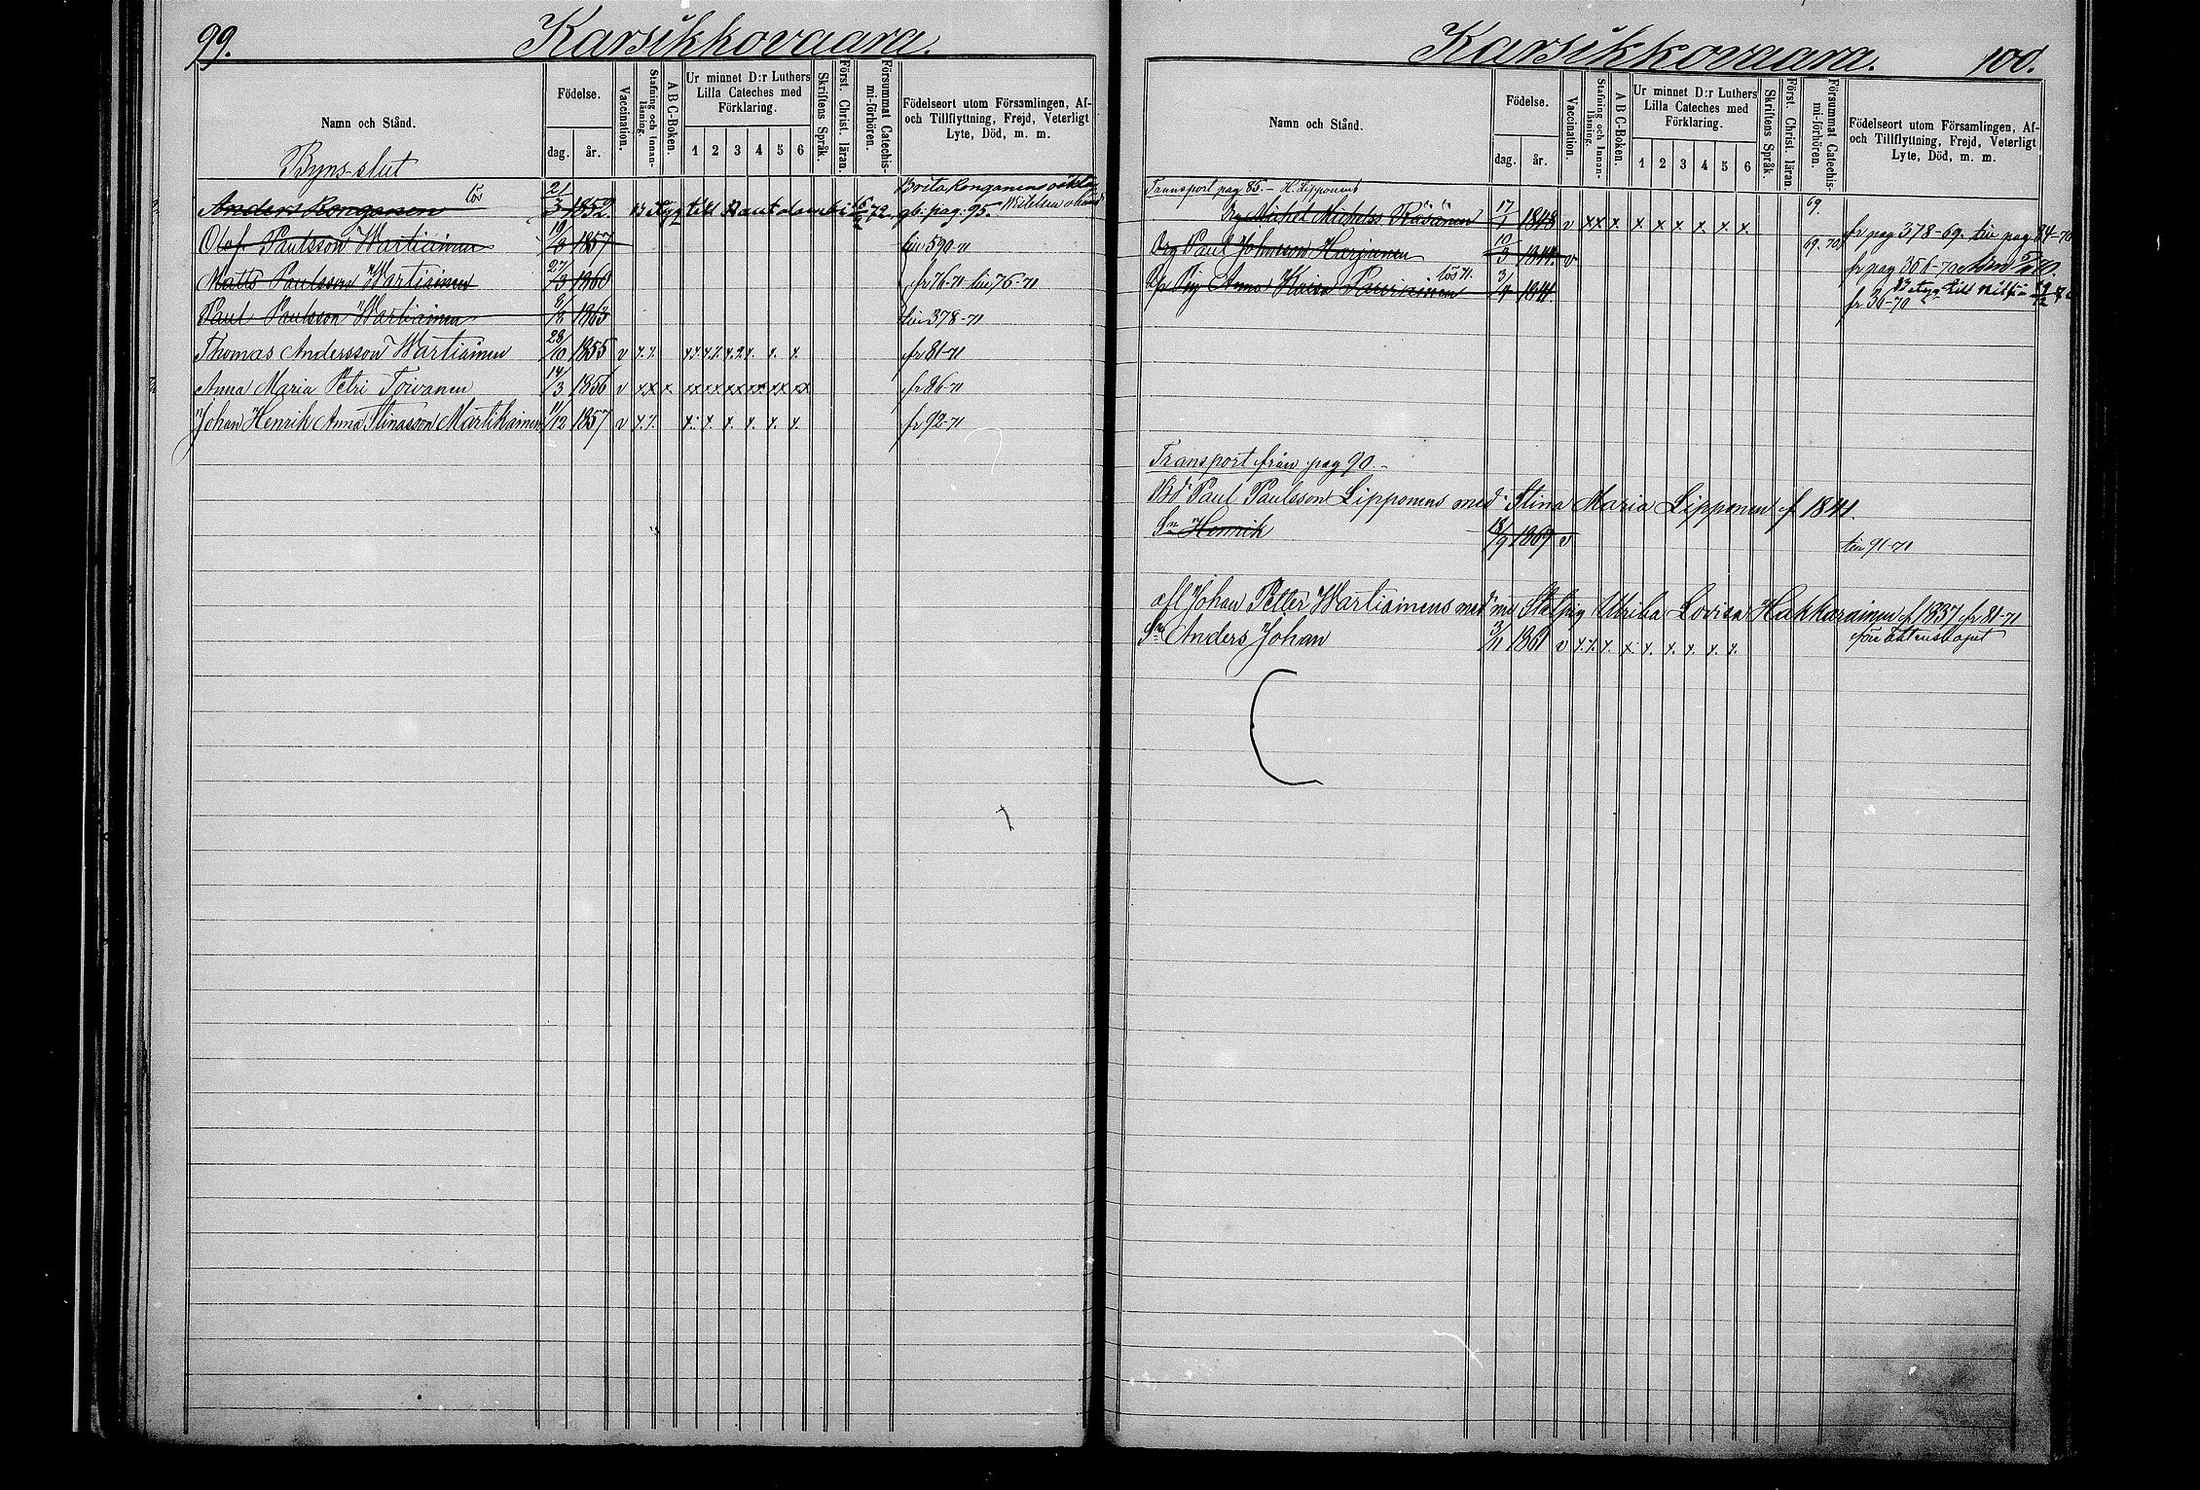 99.
Karsikkovaara.
Namn och Stånd.
Födelse.
dag.
år.
Vaccination.
Stafning och Innan-
läsning.
A B C-Boken.
Ur minnet D:r Luthers
Lilla Cateches med
Förklaring.
1 2 3 4 5 6
Skriftens Språk.
Först. Christ. läran.
Försummat Catechis-
mi-förhören.
Födelseort utom Församlingen, Af-
och Tillflyttning, Frejd, Veterligt
Lyte, Död, m. m.
Byns-slut
Anders Ronganen lös 21/3 1852 till Rautalambi 72 gb. pag. 95.
Olof Paulsson Wartiainen 1857 till 590-71
Matts Paulsson Wartiainen 1860 fr 76-71 till 76-71
Paul Paulsson Wartiainen 1863 till 378-71
Thomas Andersson Wartiainen 28/10 1855 v fr 81-71
Anna Maria Petri Toivanen 14/3 1856 v xx x xx xx xx xx xx xx fr 86-71
Johan Henrik Anna Stinasson Martikainen 11/12 1857 v fr 92-71
Karsikkovaara.
100.
Namn och Stånd.
Födelse.
dag.
år.
Vaccination.
Stafning och Innan-
läsning.
A B C-Boken.
Ur minnet D:r Luthers
Lilla Cateches med
Förklaring.
1 2 3 4 5 6
Skriftens Språk.
Först. Christ. läran
Försummat Catechis-
mi-förhören.
Födelseort utom Församlingen, Af-
och Tillflyttning, Frejd, Veterligt
Lyte, Död, m. m.
Transport pag 85. - H. Lipponens
Drg Michel Michelss Räsänen 17/1 1848 v xx x x x x x x x 69. fr pag 378-69. till pag 84-70
Drg Paul Johnsson Harjunen 10/3 1844 v 69. 70. fr pag 351-70
Pig Anna Kaisa lös 71. 3/4 1841 fr 36-70 till Nilsiä
Transport från pag 90.-
Paul Paulsson Lipponens med Stina Maria Lipponen f 1841.
Sn Henrik 18/9 1869 v till 91-71
afl Johan Petter Wartiainens med Ulrika Lovisa Hakkarainen f 1837 fr 81-71
Sn Anders Johan 3/11 1861 v före äktenskapet